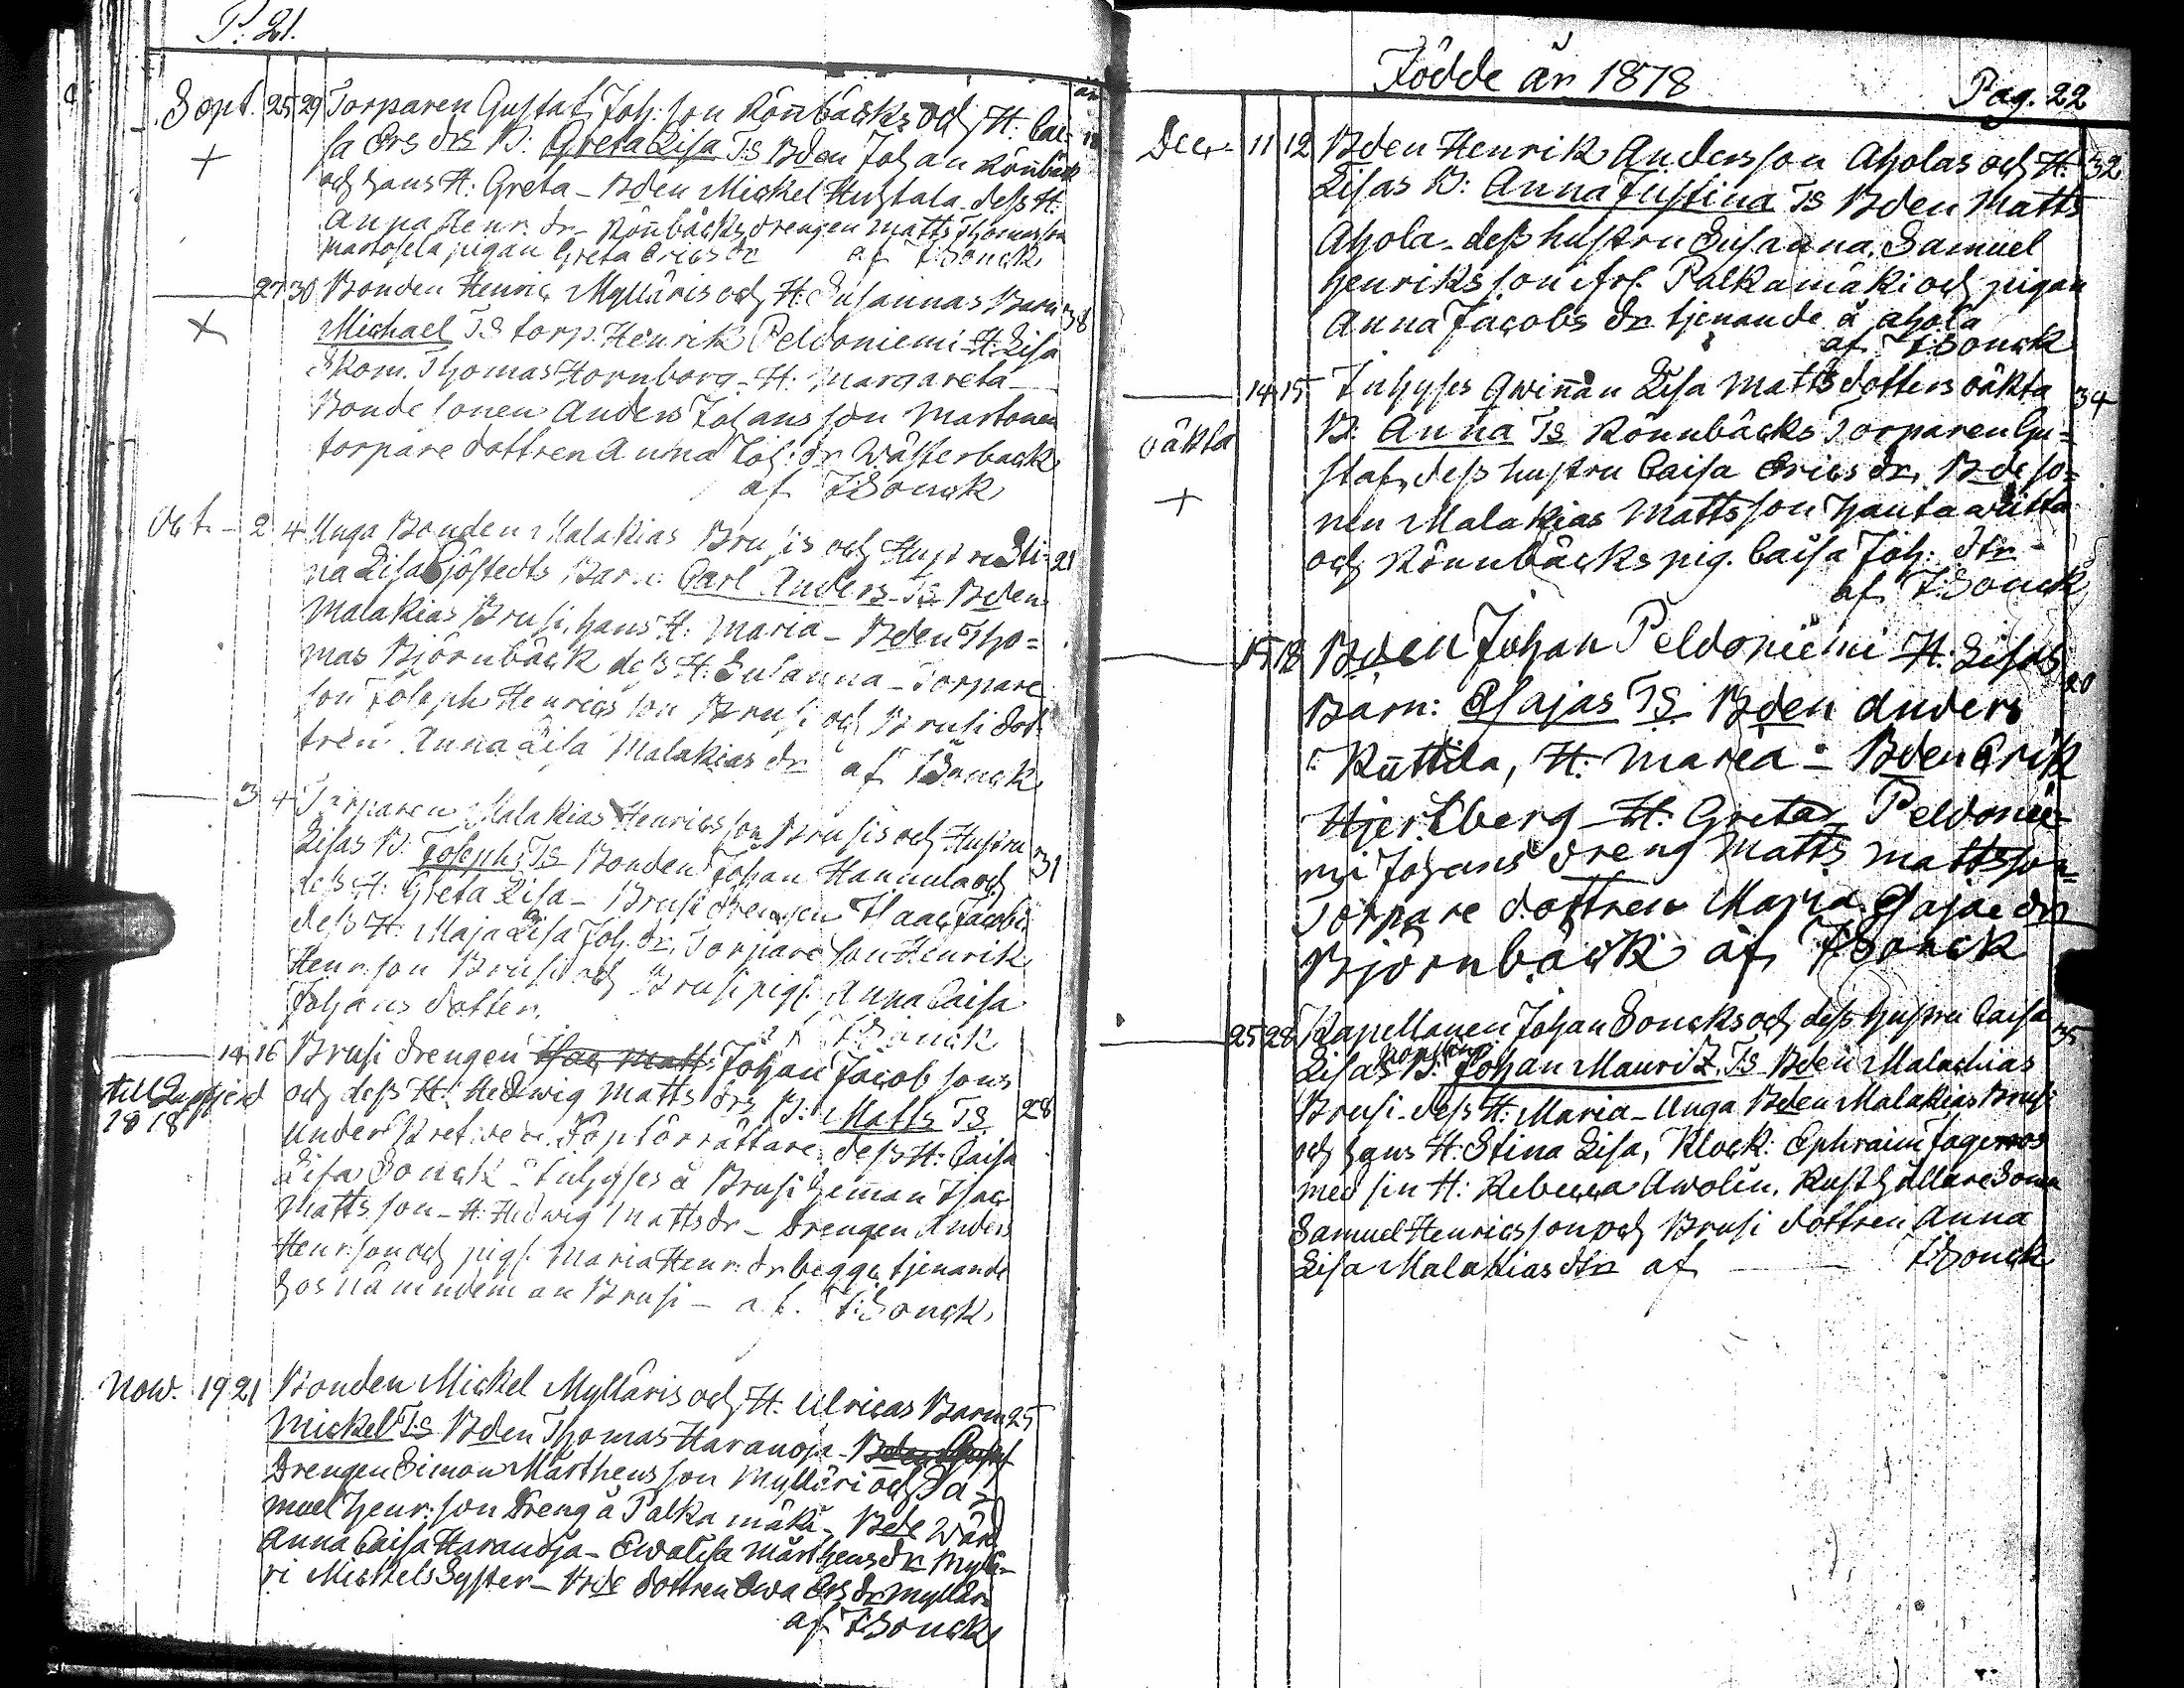 P. 21.
år
Sept. 25 29 Torparen Gustaf Joh:son Rönnbacks och H: Cai-
sa Ers drs B: Greta Lisa TS Bden Johan Rönnback
och hans H: Greta - Bden Mickel Huhtala - dess H.
Anna Henr. dr - Rönnbacks drengen Matts Thomasson
pigan Greta Ericsdr af JSonck
27 30 Bonden Henric Mylläris och H: Susannas Barn 38
Michael TS torp. Henrik Peldoniemi H: Lisa
Skom. Thomas Hornborg - H: Margareta -
Bonde sonen Anders Johansson Martonen
torpare dottren Anna Joh: dr Wästerback
af JSonck
Oct. - 2 4 Unga Bonden Malakias Brusis och Hustru Sti- 21
na Lisa Sjöstedts Barn: Carl Anders TS Bden
Malakias Brusi, hans H: Maria - Bden Tho=
mas Björnback dess H: Susanna - Torpare
son Joseph Henricsson Brusi och Brusi dot-
tren Anna Lisa Malakias dr af JSonck
3 4 Torparen Malakias Henricsson Brusis och Hustru
Lisas B: Joseph TS Bonden Johan Hannula och 31
dess H: Greta Lisa - Brusi drengen Isaac Jacobs.
dess H: Maja Lisa Joh. dr, Torpare son Henrik
Henr:son Brusi och Brusi pig. Anna Caisa
Johans dotter.
af JSonck
14 16 Brusi drengen Isac Matts Johan Jacobsons
till Lappfjerd och dess H: Hedwig Matts drs B: Matts TS 28
1818
Under dess H: Caisa
Lisa Sonck - Inhyses å Brusi hemman Isac
Mattsson - H: Hedwig Mattsdr - Drengen Anders
Henr:son och pig. Maria Henr. dr begge tjenande
hos nämndeman Brusi - af JSonck
Now. 19 21 Bonden Mickel Mylläris och H. Ulricas Barn 25
Mickel TS Bden Thomas Haranoja - Bden
Drengen Simon Mårthensson Mylläri och Sa-
muel Henr:son Dreng å Palkamäki - Bde
Anna Caisa Haranoja - Ewa Lisa Mårthens dr Myllä-
ri Mickels Syster - Bde dottren Ewa Ers dr Mylläri
af JSonck
Födde år 1878 Pag. 22
Decr 11 12 Bden Henrik Andersson Aholas och H. 32
Lisas B: Anna Justina TS Bden Matts
Ahola - dess hustru Susanna, Samuel
Henriksson Palkamäki och pigan
Anna Jacobs dr tjenande å Ahola
af JSonck
14 15 Inhyses qwinnan Lisa Matts dotters oäkta 34
oäkta B: Anna TS Rönnbäcks Torparen Gu=
staf, dess hustru Caisa Erics dr, Bde so=
nen Malakias Mattsson Hautawiitta
och Rönnbäcks pig. Caisa Joh: dtr -
af JSonck
15 18 Bden Johan Peldoniemi H: Lisas 20
Barn: Esajas TS Bden Anders
Knuttila, H: Maria - Bden Erik
Hjertberg H: Greta Peldonie-
mi Johans dreng Matts Mattsson=
Torpare dottren Maria Esajae dr
Björnback af JSonck
25 28 Kapellanen Johan Soncks och dess hustru Caisa 35
Lisas B: Johan Mauritz TS Bden Malachias
Brusi - dess H: Maria - Unga Bden Malakias Brusi
och hans H: Stina Lisa, Klock: Ephraim Fagerroos
med sin H: Rebecca Awolin. Rusthållare Sonen
Samuel Henricsson och Brusi dottren Anna
Lisa Malakias dtr af JSonck